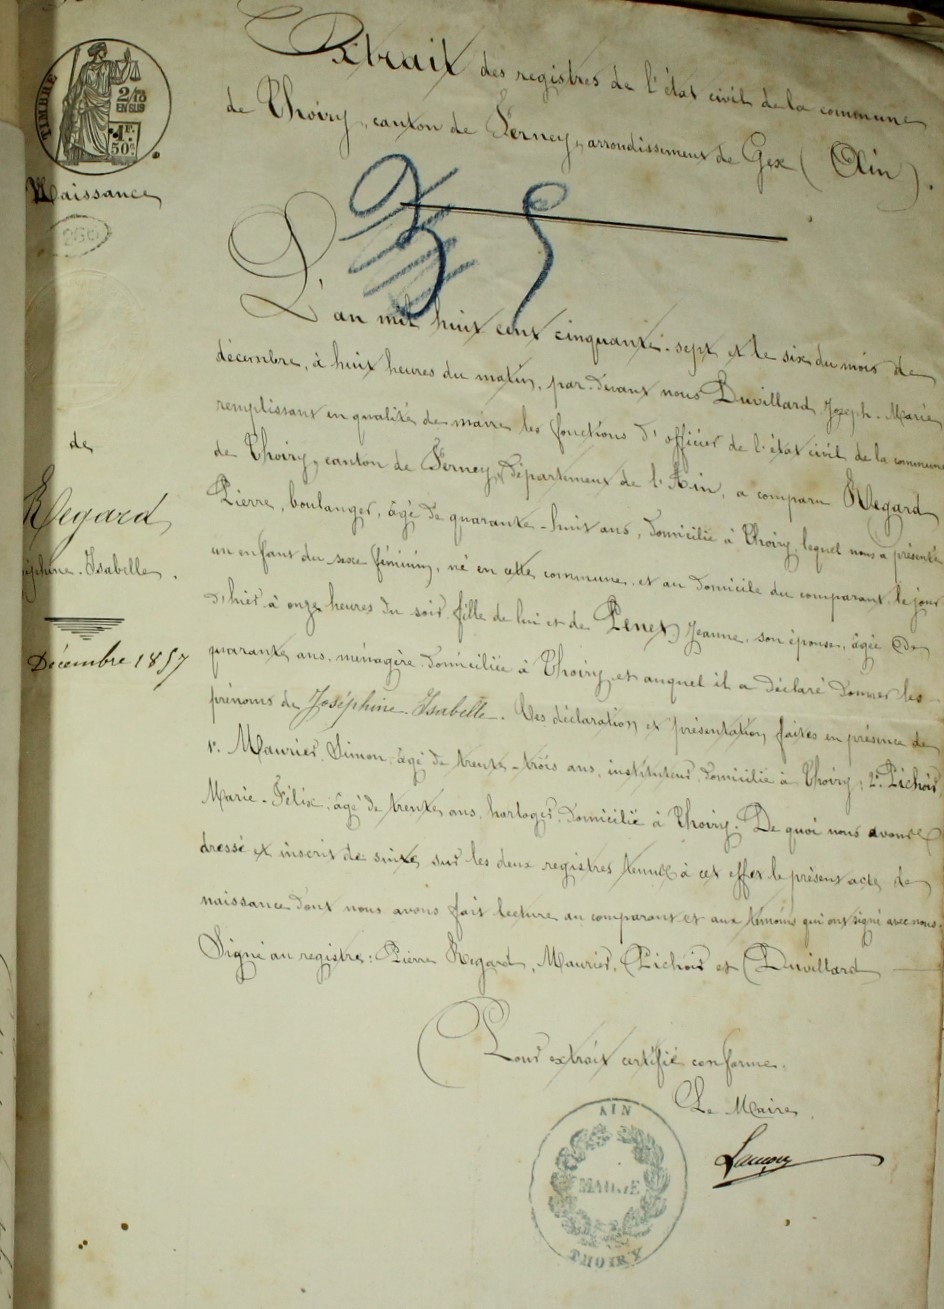 Extrait des registres de l'état civil de la commune
de Thoiry, canton de Ferney, arrondissement de Gex (Ain).
TIMBRE
2/10
EN SUS
1F.
50c.
Naissance
de
Regard
Joséphine-Isabelle.
Décembre 1857
35
L'an mil huit cent cinquante-sept et le six du mois de
décembre, à huit heures du matin, par-devant nous Duvillard Joseph-Marie
remplissant en qualité de maire les fonctions d'officier de l'état civil de la commune
de Thoiry, canton de Ferney, Département de l'Ain, a comparu Regard
Pierre, boulanger, âgé de quarante-huit ans, domicilié à Thoiry, lequel nous a présenté
un enfant du sexe féminin, né en cette commune et au domicile du comparant, le jour
d'hier à onze heures du soir, fille de lui et de Penet Jeanne, son épouse, âgée de
quarante ans, ménagère, domiciliée à Thoiry, et auquel il a déclaré donner les
prénoms de Joséphine-Isabelle. Ces déclaration et présentation faites en présence de
1°. Maurier Simon, âgé de trente-trois ans, instituteur domicilié à Thoiry, 2°. Pichois
Marie-Félix, âgé de trente ans, horloger, domicilié à Thoiry. De quoi nous avons
dressé et inscrit de suite, sur les deux registres tenus à cet effet le présent acte de
naissance dont nous avons fait lecture au comparant et aux témoins qui ont signé avec nous.
Signé au registre: Pierre Regard, Maurier, Pichois et Duvillard
Pour extrait certifié conforme.
Le Maire,
AIN
MAIRIE
THOIRY